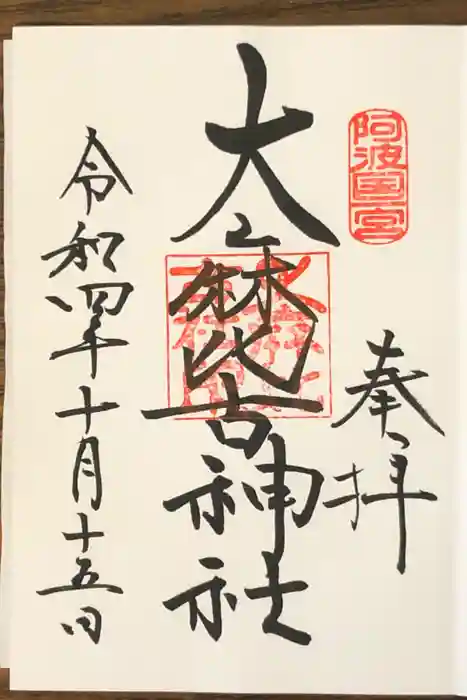 阿波国一宮
奉拝
大麻比古神社
令和四年十月十五日